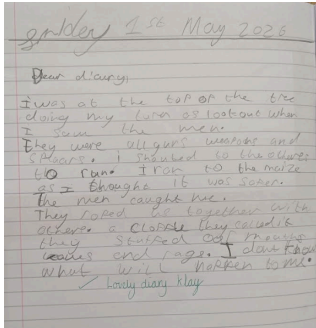 1st May 2026
Dear diary,
I was at the top of the tre
doing my turn as lookout when
I saw the men.
they were all guns weapons and
spears. I shouted to the others
to run. I ran to the maize
as I thought it was safer.
The men caught me.
They roped us together with
others. a they called it
they stuffed our mouths
and rags. I dont know
what will happen to me.
✓ Lovely diary klay